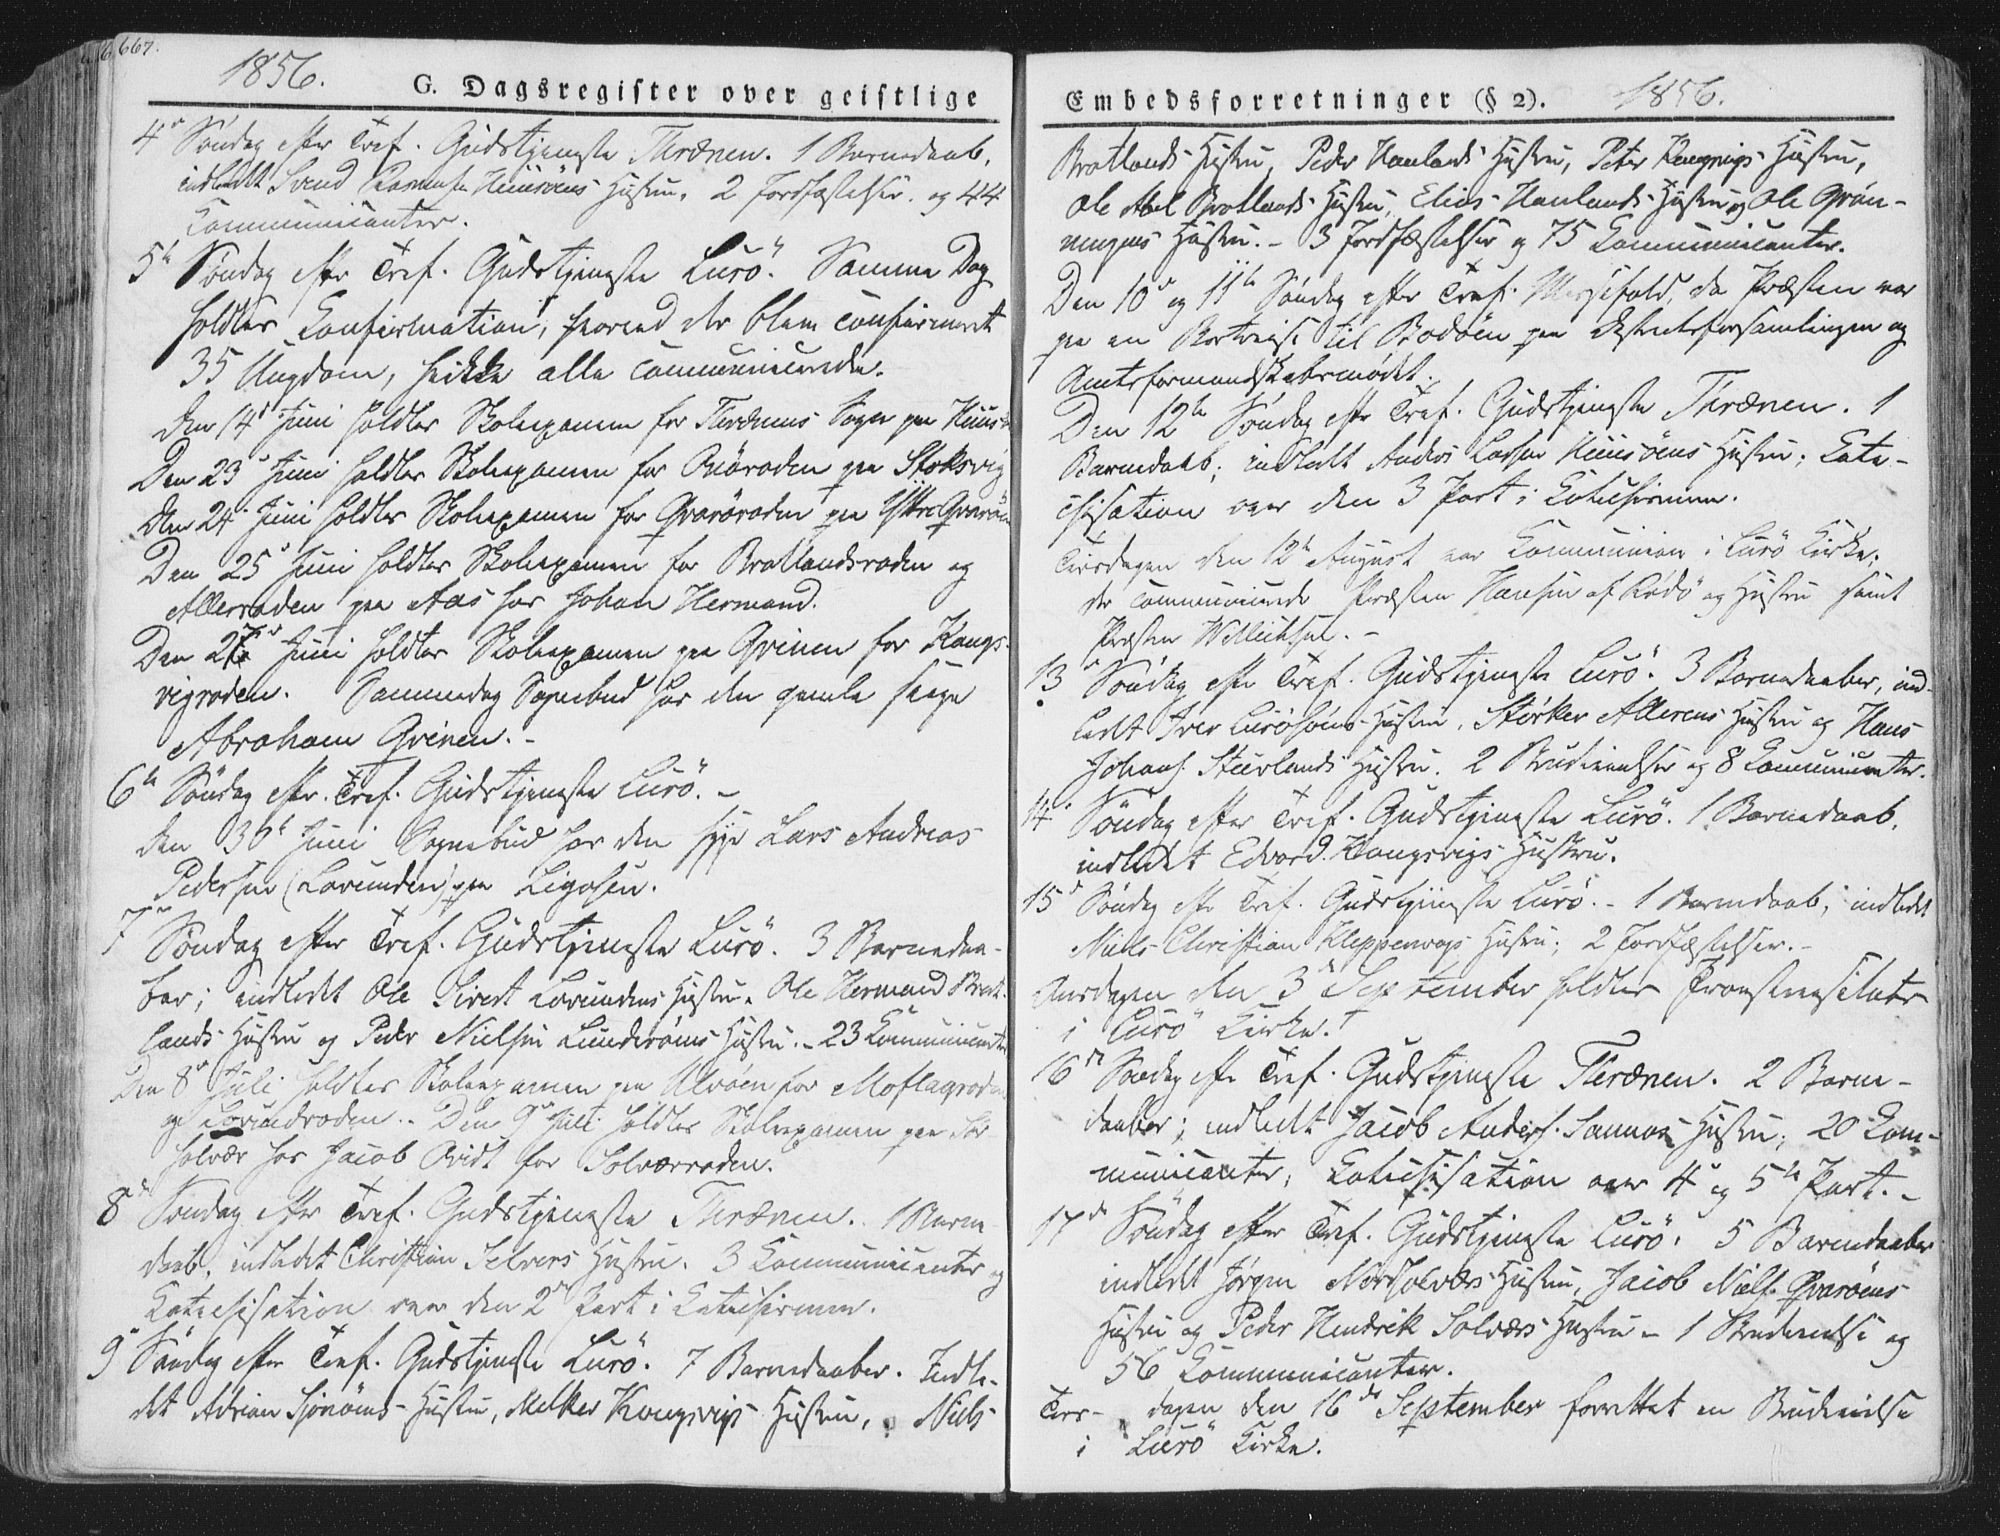 667.
1856.
G. Dagsregister over geistlige
4de Søndag efter Tref. Gudstjeneste Thrænen. 1 Barnedaab,
indledt Svend Rasmusen Huusøens Hustru. 2 Jordfæstelser. og 44
Communicanter.
5te Søndag efter Tref. Gudstjeneste Lurö. Samme Dag
holdtes Confirmation, hvorved der bleve confirmerede
35 Ungdom, hvilke alle communicerede.
Den 14de Juni holdtes Skoleexamen for Thrænens Sogn paa Huusøen
Den 23de Juni holdtes Skoleexamen for paa Stoksvig
Den 24de Juni holdtes Skoleexamen for Qvarøroden paa Yttre Qvarøen
Den 25de Juni holdtes Skoleexamen for Bratlandsroden og
Allerroden paa Aas hos Johan Hermand.
Den 27de Juni holdtes Skoleexamen paa Qvinen for Kongs-
vigroden. Sammedag Sognebud hos den gamle syge
Abraham Qvinen. -
6te Søndag efter Tref. Gudstjeneste Lurö. -
den 30te Juni Sognebud hos den syge Lars Andreas
Pedersen (Lovunden) paa Ligosen.
7de Søndag efter Tref. Gudstjeneste Lurö. 3 Barnedaa-
ber; indledet Ole Sivert Lovundens Hustru. Ole Hermand Brat-
lands Hustru og Peder Nielsen Lunderøens Hustru. - 23 Communicanter
Den 8de Juli holdtes Skoleexamen paa Alvøen for Moflagroden
og Lovundroden. Den 9de Juli holdtes Skoleexamen paa Sør
Solvær hos Jacob Qvidt for Solværroden.
8de Søndag efter Tref. Gudstjeneste Thrænen. 1 Barne-
daab, indledet Christian Selvers Hustru. 3 Communicanter og
Catechisation over den 2den Part i Catechismen.
9de Søndag efter Tref. Gudstjeneste Lurö. 7 Barnedaaber. Indle-
det Adrian Sjonøens Hustru, Melker Kongsvigs Hustru, Niels
Embedsforretninger (§ 2).
1856.
Bratlands Hustru, Peder Haulands Hustru, Peter Kongsvigs Hustru,
Ole Abel Bratlands Hustru, Elias Haulands Hustru og Ole Grøn-
Hustru. - 3 Jordfæstelser og 75 Communicanter.
Den 10de og 11te Søndag efter Tref. Messefald, da Præsten var
paa en Bortreise til Bodøen paa Districtsforsamlingen og
Amtsformandskabsmødet.
Den 12te Søndag efter Tref. Gudstjeneste Thrænen. 1
Barnedaab; indledt Anders Larsen Huusøens Hustru; Cate-
chisation over den 3 Part i Catechismen.
Tirsdagen den 12te August var Communion i Lurö Kirke;
der communicerede Præsten Hansen af Rödö og Hustru samt
Præsten Wellichsen. -
13de Søndag efter Tref. Gudstjeneste Lurö. 3 Barnedaaber, ind-
ledt Iver Hustru, Størker Allerens Hustru og Hans
Johans. Stuvlands Hustru. 2 Brudevielser og 8 Communicanter.
14. Søndag efter Tref. Gudstjeneste Lurö. 1 Barnedaab,
indledet Edvard Kongsvigs Hustru.
15de Søndag efter Tref. Gudstjeneste Lurö. - 1 Barnedaab; indledet
Niels Christian Kleppenvogs Hustru; 2 Jordfæstelser. -
Onsdagen den 3de September holdtes Provstevisitats
i Lurö Kirke. †
16de Søndag efter Tref. Gudstjeneste Thrænen. 2 Barne-
daaber; indledt Jacob Anders. Sannas Hustru; 20 Com-
municanter; Catechisation over 4de og 5te Part. -
17de Søndag efter Tref. Gudstjeneste Lurö. 5 Barnedaaber
indledet Jørgen Nordsolværs Hustru, Jacob Niels. Qvarøens
Hustru og Peder Hendrik Solværs Hustru - 1 Brudevielse og
56 Communicanter.
Tirs- dagen den 16de September forrettet en Brudevielse
i Lurö Kirke.